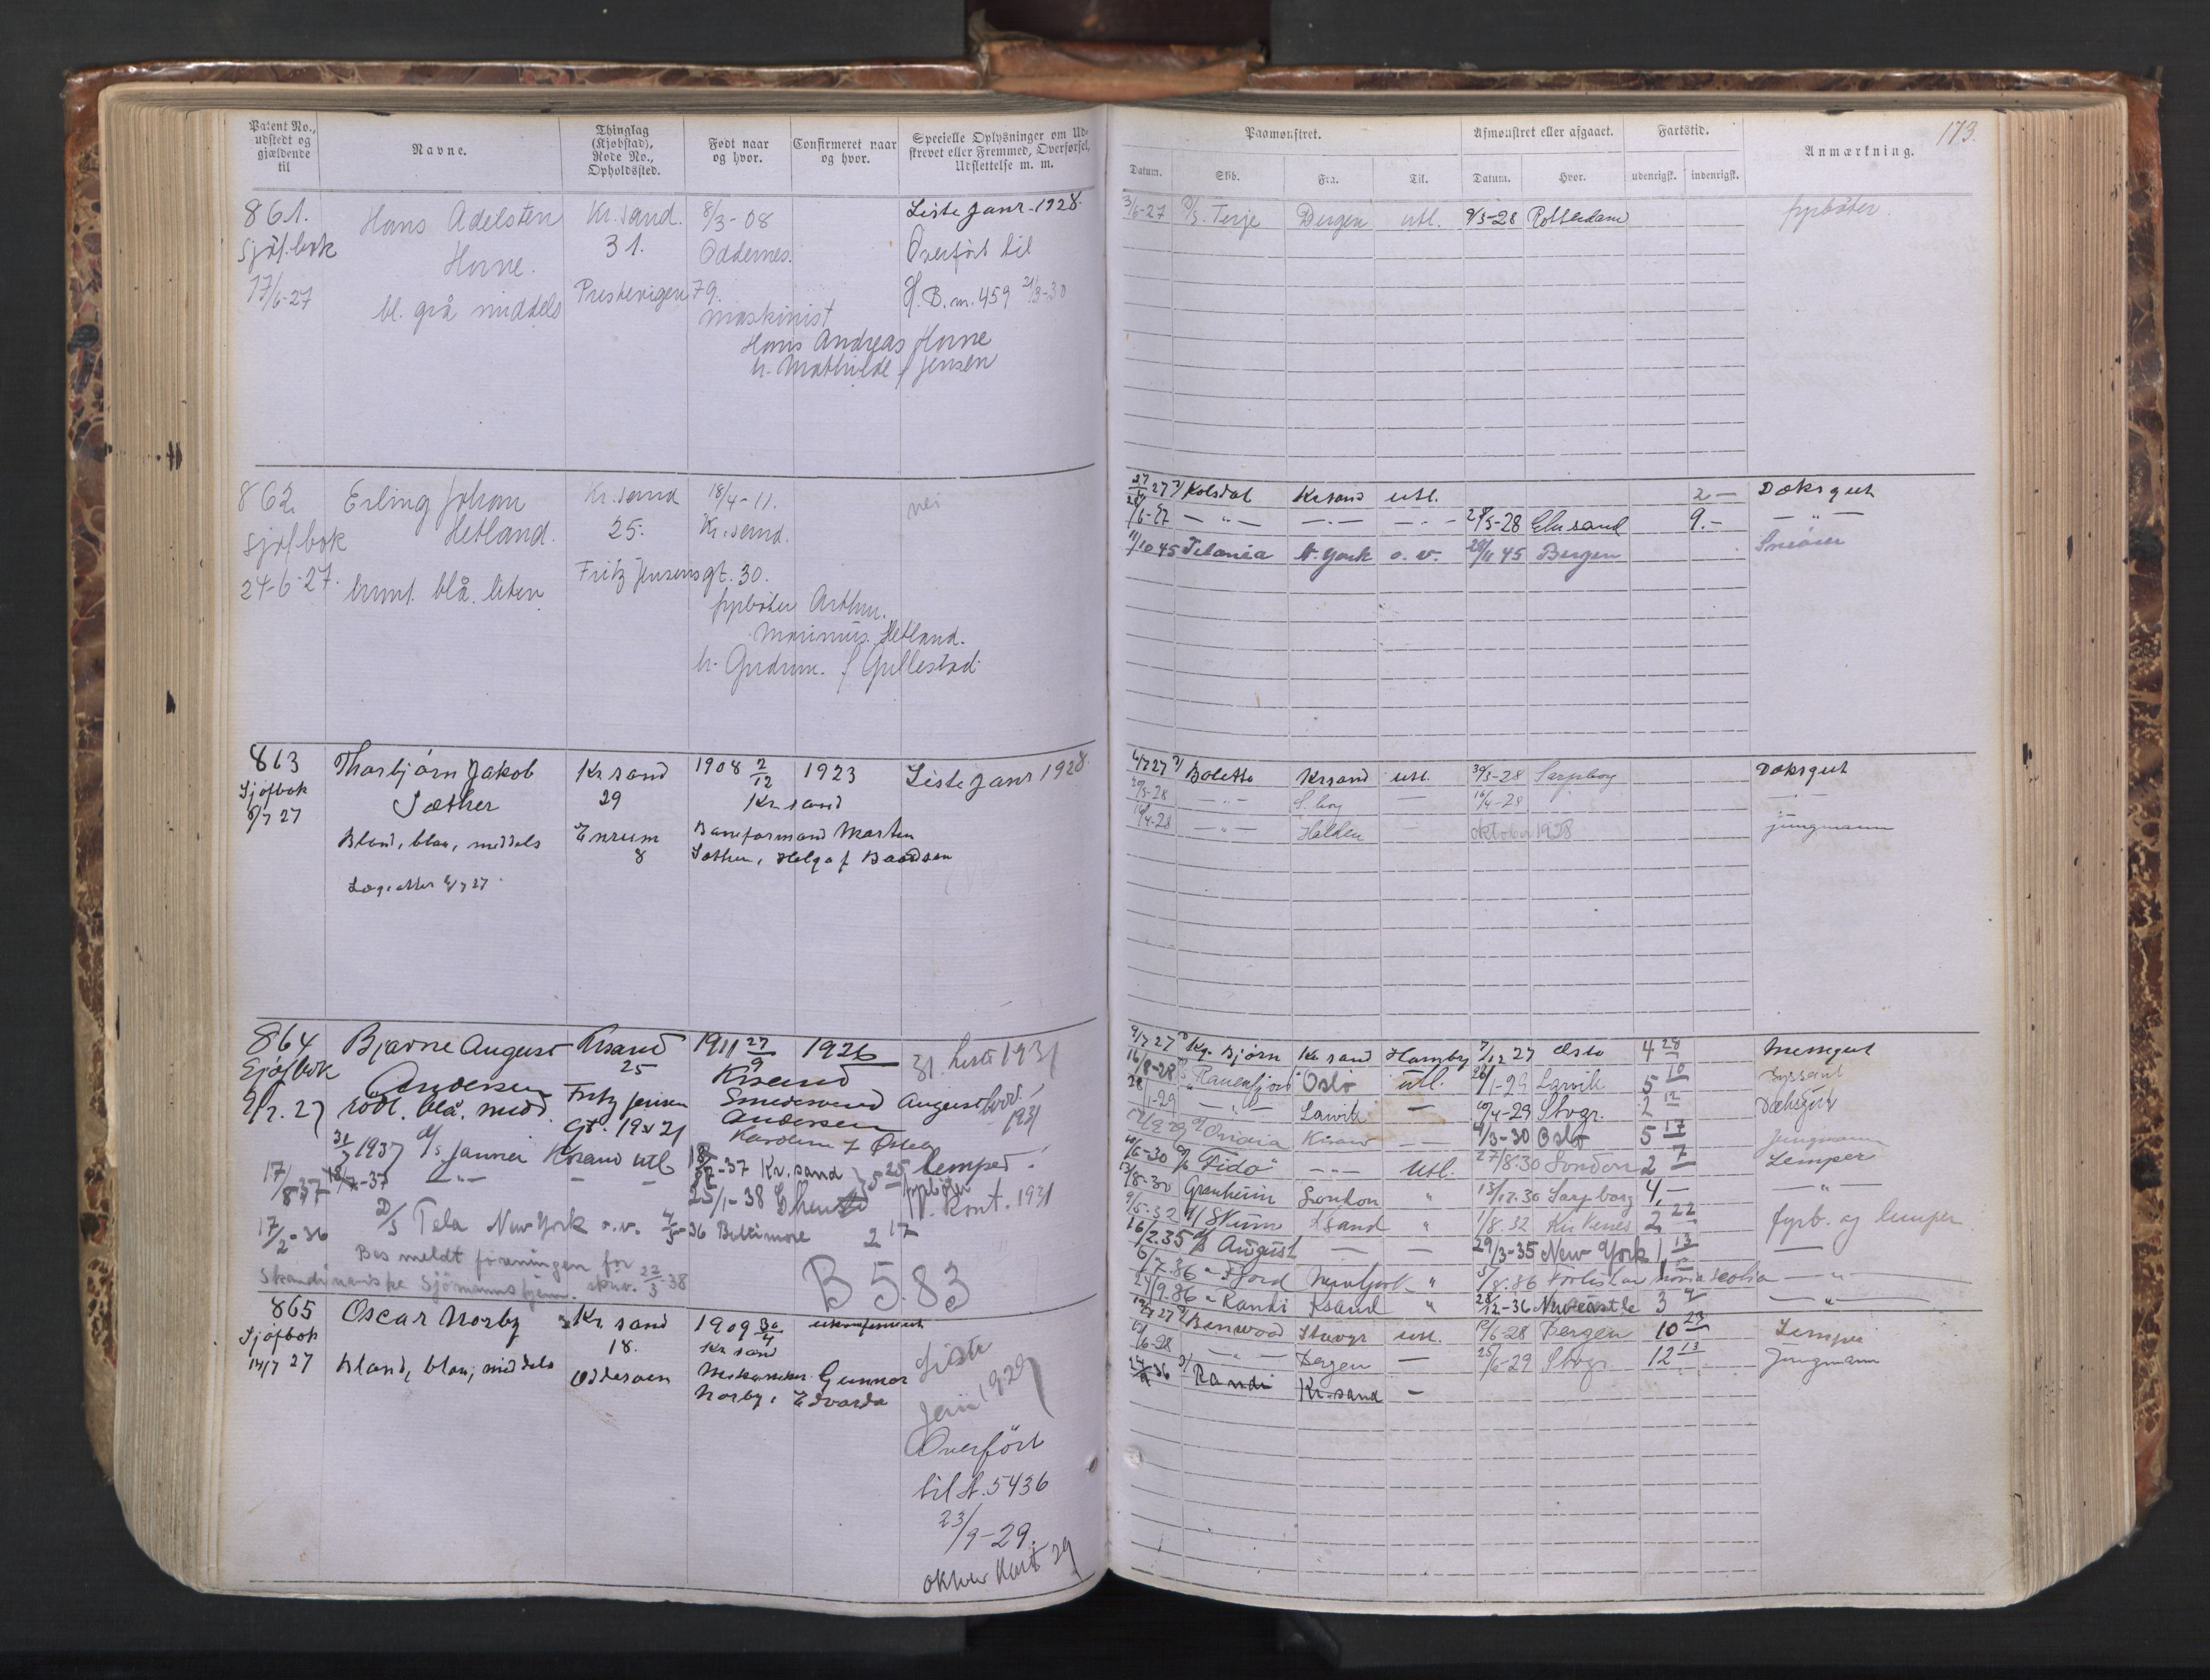 Patent No., udstedt og gjældende til
Navne.
Thinglag (Kjøbstad), Rode No., Opholdssted.
Født naar og hvor.
Confirmeret naar og hvor.
Specielle Oplysninger om Udskrevet eller Fremmed, Overførsel, Udslettelse m. m.
861.
Sjøf.bok
17/6-27
Hans Adelsten
Horne.
bl. grå middels
Kr.sand.
31.
Prestevigen 79.
8/3-08
Oddernes.
maskinist
Hans Andreas Horne
h. Mathilde f Jensen
Liste Janr-1928.
Overført til
H.B.nr. 459 21/3-30
862.
Sjøfbok
24-6-27.
Erling Johan
Hetland.
brunt. blå. liten
Kr.sand
25.
Fritz Jensensgt. 30.
18/4-11.
Kr.sand.
fyrbøter Arthur
Marinius Hetland.
h. Gudrun. f Gullestad
nei
863
Sjøfbok
6/7 27
Thorbjørn Jakob
Sæther
Blond, blaa, middels
Kr sand
29
Enrum
8
1908 2/12
1923
Kr. sand
Baneformand Martin
Sæther, Helga f Baardsen
Liste Janr 1928.
864
Sjøfbok
9/7.27
Bjarne August
Andersen
rödl. blå. midd.
Krsand
25
Fritz Jensen
Gt. 19 x 21
1911 27/9
1926
Krsand
Smedesvend August
Andersen
Karoline f
31. Liste 1931
1931
31/7 1937 Jannei Krsand utl
17/8-37
-37 Kr.sand
5 25
lemper
fyrbøter
25/1-38 Ghent
Kont. 1931
17/2-36
D/S Tela New York o.v.
-36 Baltimore 2 17
Bes meldt foreningen for
Skandinaviske Sjömannshjem. skriv. 22/3-38
B 583
865
Sjøfbok
14/7 27
Oscar Norby
blond, blaa, middels
Kr. sand
18.
Odderøen
1909 30/4
Kr sand
ukonfirmert
Mekaniker Gunnar
Norby, Edvarda
Liste
Jan 1929
Overført
til A. 5436
23/9-29.
Paamønstret.
Afmønstret eller afgaaet.
Fartstid.
Anmærkning.
173.
Datum. Skib. Fra. Til. Datum. Hvor. udenrigsk. indenrigsk.
3/6-27 D/S. Terje Bergen utl. 9/3-28 Rotterdam fyrbøter
27/ 27 Kolsdal Krsand utl. 2 — Dæksgut
/6-27 — " — — " — 28/3-28 9.- — " —
11/10 45 Titania N. York o. v. 29/11 45 Bergen Smører
6/7 27 Boletta Krsand utl. 30/3-28 Sarpsborg Dæksgut
30/3-28 — " — S. borg — 16/4-28
16/4-28 — " — Halden oktober 1928 jungmann
9/7 27 Kg. Bjørn Kr sand Hamby 7/12 27 Oslo 4 28 Messegut
16/8-28 Ranenfjord Oslo utl. 26/1-29 Larvik 5 10
28/1-29 — " — Larvik — 10/4-29 Stvgr. 2 12 Dæksgut
Krsand — 4/3-30 Oslo 5 17 Jungmann
/6-30 Fido — " — Utl. 27/8.30 London 2 7 Lemper
/8-30 Granheim London " 13/12.30 Sarpsborg 4,- — " —
9/5.32 Skum Ksand " 1/8.32 Kirkenes 2 22 fyrb. og lemper
16/2.35 August — — 29/3-35 New York 1, 13 —
6/7.36 Fjord " Nova Scotia — " —
24/9.36 " Randi Ksand " 28/12-36 Newcastle 3 4 — " —
27 Benwood Stavgr utl. /6-28 Bergen 10 23 Lemper
/6-28 — " — Bergen — 25/6-29 Stvgr. 12 13 Jungmann
24/9 36 Randi Kr.sand —